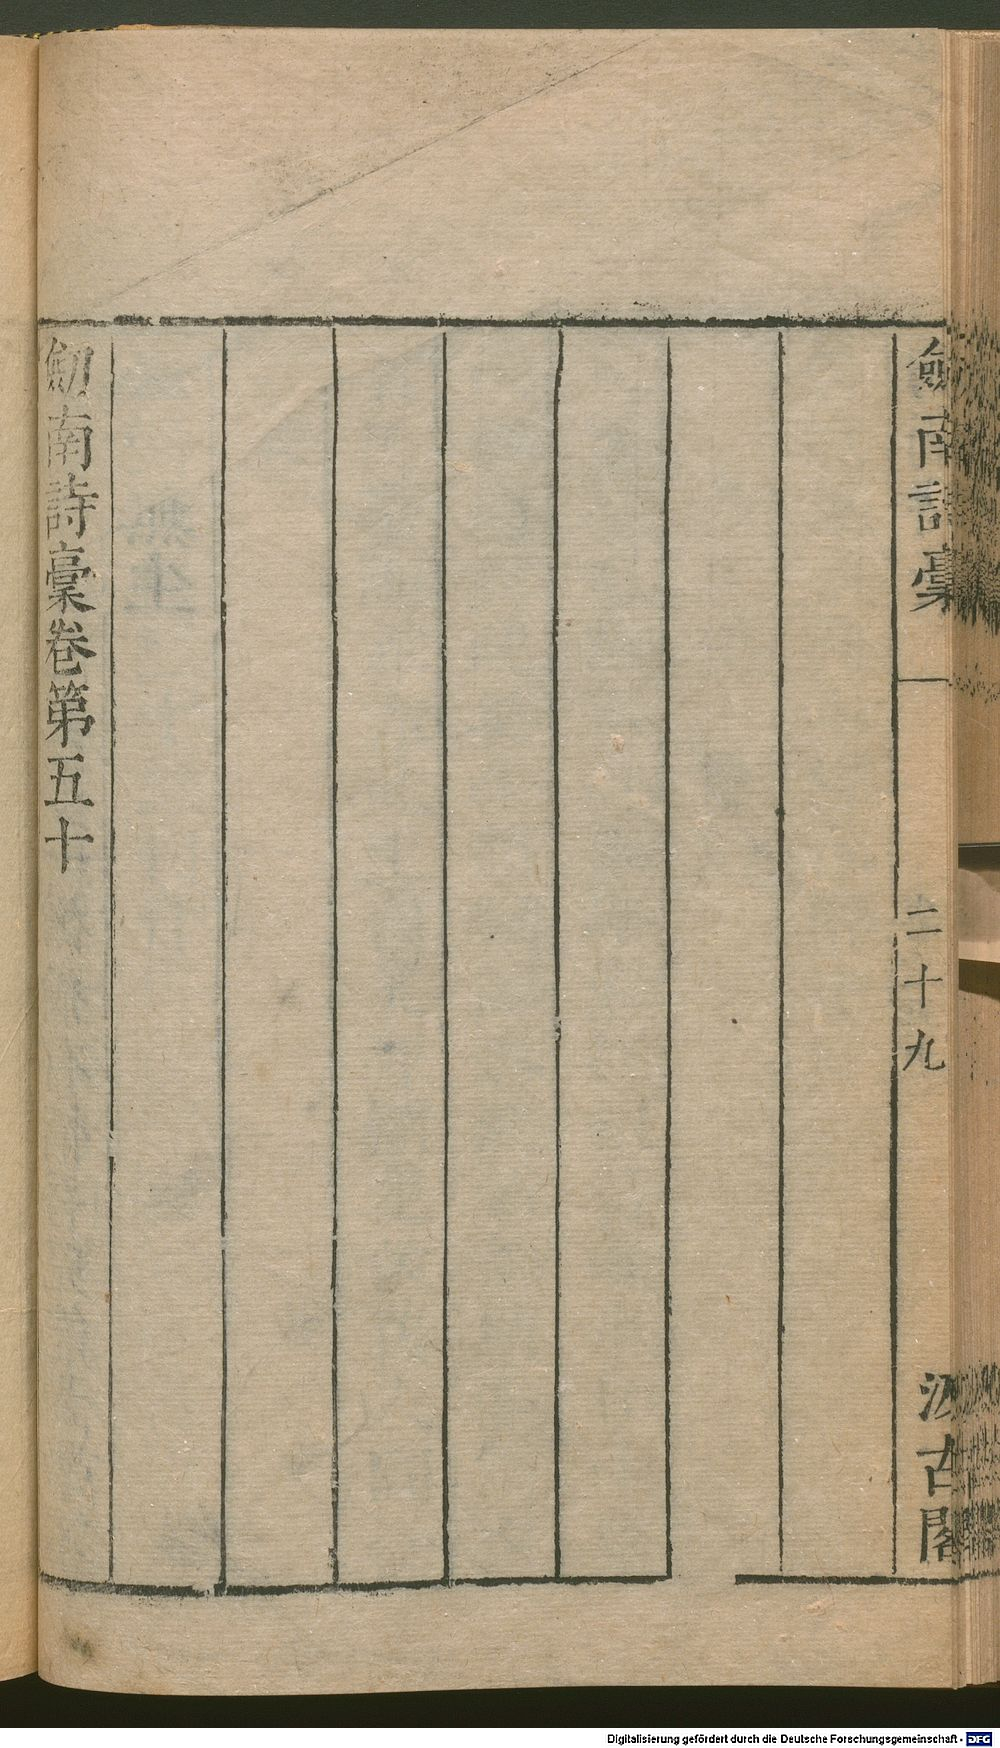 劎南詩稾
二十九
汲古閣
劎南詩稾卷第五十
Digitalisierung gefördert durch die Deutsche Forschungsgemeinschaft - DFG